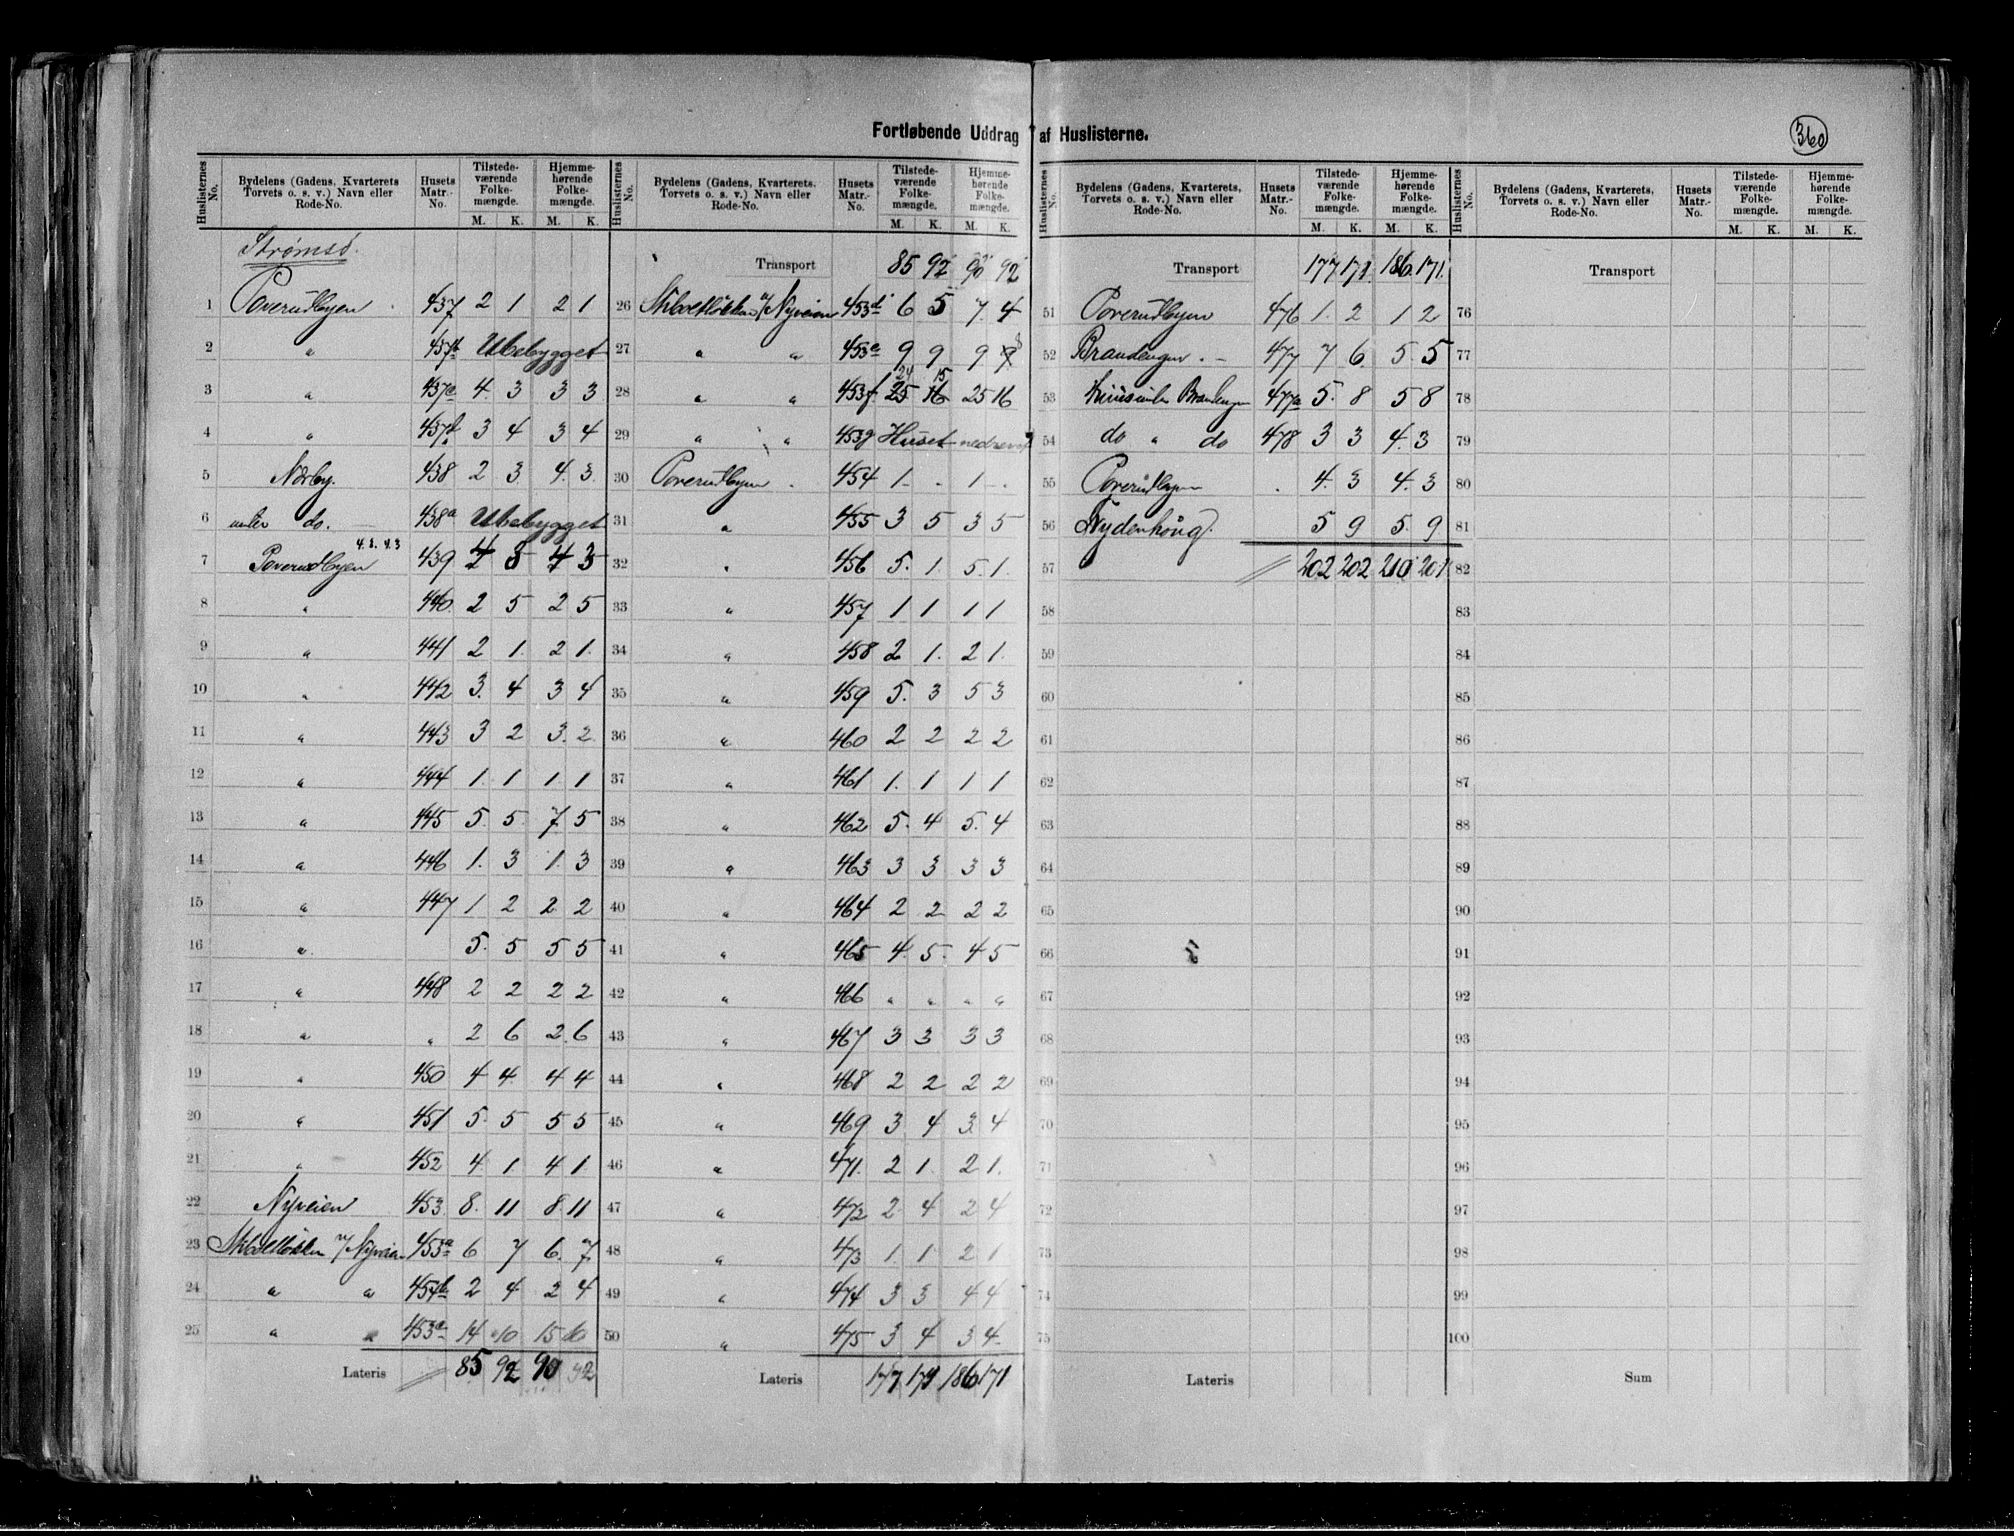 Fortløbende Uddrag af Huslisterne.
360
Huslisternes No. Bydelens (Gadens, Kvarterets, Torvets o. s. v.) Navn eller Rode-No. Husets Matr.-No. Tilstedeværende Folkemængde. M. K. Hjemmehørende Folkemængde. M. K.
Strømsø.
1 Poverudbyen 437 2 1 2 1
2 " 437b Ubebygget
3 " 437c 4 3 3 3
4 " 437d 3 4 3 4
5 Nørby. 438 2 3 4 3
6 under do. 438a Ubebygget
4.3. 4.3
7 Poverudbyen 439 4 3 4 3
8 " 440 2 5 2 5
9 " 441 2 1 2 1
10 " 442 3 4 3 4
11 " 443 3 2 3 2
12 " 444 1 1 1 1
13 " 445 5 5 7 5
14 " 446 1 3 1 3
15 " 447 1 2 2 2
16 " 5 5 5 5
17 " 448 2 2 2 2
18 " " 2 6 2 6
19 " 450 4 4 4 4
20 " 451 5 5 5 5
21 " 452 4 1 4 1
22 Nyveien 453 8 11 8 11
23 v/ Nyveien 453a 6 7 6 7
24 " " 454b 2 4 2 4
25 " " 453c 14 10 15 10
Lateris 85 92 90 92
Huslisternes No. Bydelens (Gadens, Kvarterets, Torvets o. s. v.) Navn eller Rode-No. Husets Matr.-No. Tilstedeværende Folkemængde. M. K. Hjemmehørende Folkemængde. M. K.
Transport 85 92 90 92
26 v/ Nyveien 453d 6 5 7 4
27 " " 453e 9 9 9 9 8
24 15
28 " " 453f 25 16 25 16
29 " " 453g Huset nedrevet
30 Poverudbyen 454 1 - 1 -
31 " 455 3 5 3 5
32 " 456 5 1 5 1
33 " 457 1 1 1 1
34 " 458 2 1 2 1
35 " 459 5 3 5 3
36 " 460 2 2 2 2
37 " 461 1 1 1 1
38 " 462 5 4 5 4
39 " 463 3 3 3 3
40 " 464 2 2 2 2
41 " 465 4 5 4 5
42 " 466 " " " "
43 " 467 3 3 3 3
44 " 468 2 2 2 2
45 " 469 3 4 3 4
46 " 471 2 1 2 1
47 " 472 2 4 2 4
48 " 473 1 1 2 1
49 " 474 3 3 4 4
50 " 475 3 4 3 4
Lateris 177 171 186 171
Huslisternes No. Bydelens (Gadens, Kvarterets, Torvets o. s. v.) Navn eller Rode-No. Husets Matr.-No. Tilstedeværende Folkemængde. M. K. Hjemmehørende Folkemængde. M. K.
Transport 177 171 186 171
51 Poverudbyen 476 1 2 1 2
52 Brandengen 477 7 6 5 5
53 Brandengen 477a 5 8 5 8
54 do " do 478 3 3 4 3
55 Poverudbyen 4 3 4 3
56 5 9 5 9
57 202 202 210 201
58
59
60
61
62
63
64
65
66
67
68
69
70
71
72
73
74
75
Lateris
Huslisternes No. Bydelens (Gadens, Kvarterets, Torvets o. s. v.) Navn eller Rode-No. Husets Matr.-No. Tilstedeværende Folkemængde. M. K. Hjemmehørende Folkemængde. M. K.
Transport
76
77
78
79
80
81
82
83
84
85
86
87
88
89
90
91
92
93
94
95
96
97
98
99
100
Sum